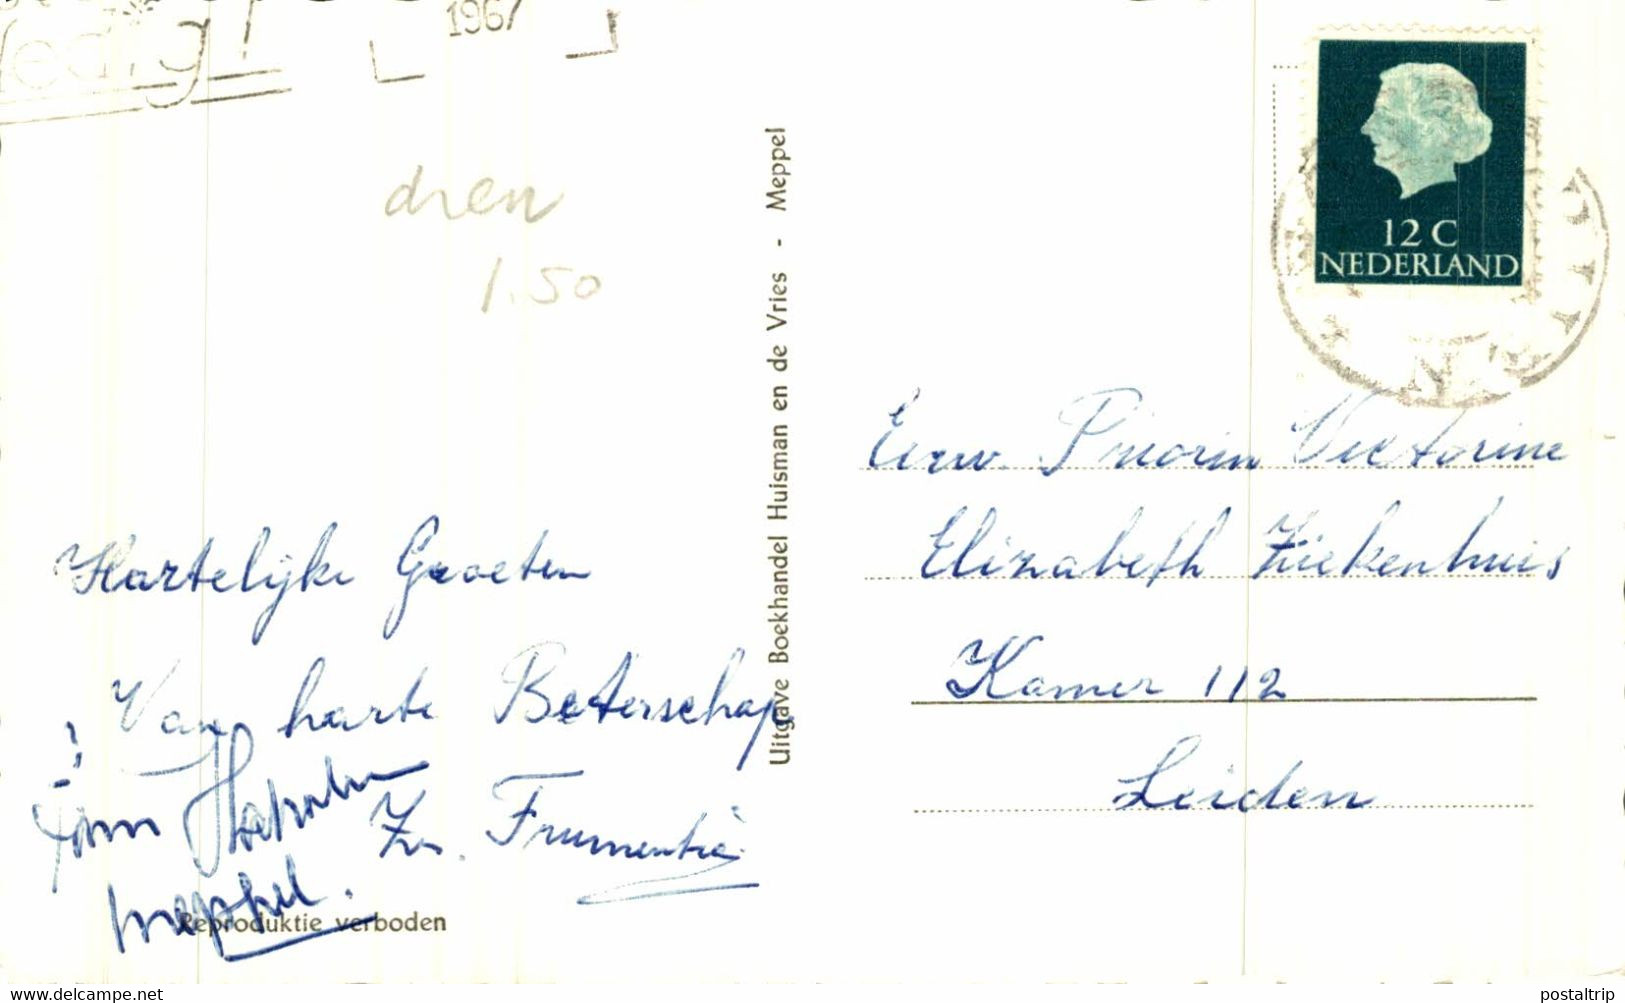 1967
dren
1.50
Hartelijke Groeten
Van harte Beterschap
!
Zr. Frumentia
Meppel.
Reproduktie verboden
Uitgave Boekhandel Huisman en de Vries - Meppel
12 C
NEDERLAND
Eerw. Priorin Victorine
Elizabeth Ziekenhuis
Kamer 112
Leiden
postaltrip
www.delcampe.net